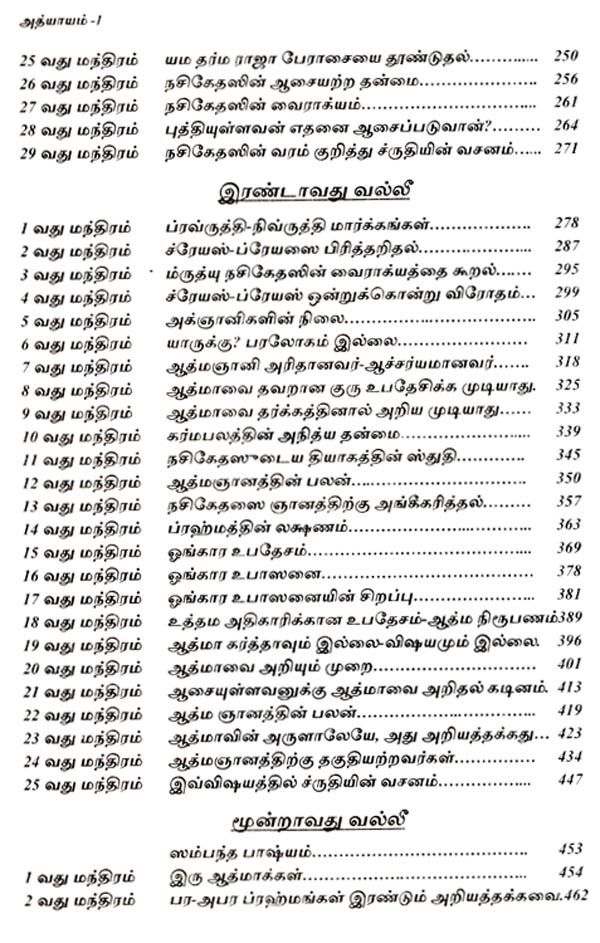 அத்யாயம் -1
25 வது மந்திரம் யம தர்ம ராஜா பேராசையை தூண்டுதல்............... 250
26 வது மந்திரம் நசிகேதஸின் ஆசையற்ற தன்மை..................... 256
27 வது மந்திரம் நசிகேதஸின் வைராக்யம்.............................. 261
28 வது மந்திரம் புத்தியுள்ளவன் எதனை ஆசைப்படுவான்?......... 264
29 வது மந்திரம் நசிகேதஸின் வரம் குறித்து ச்ருதியின் வசனம்...... 271
இரண்டாவது வல்லீ
1 வது மந்திரம் ப்ரவ்ருத்தி-நிவ்ருத்தி மார்க்கங்கள்................... 278
2 வது மந்திரம் ச்ரேயஸ்-ப்ரேயஸை பிரித்தறிதல்..................... 287
3 வது மந்திரம் ம்ருத்யு நசிகேதஸின் வைராக்யத்தை கூறல்....... 295
4 வது மந்திரம் ச்ரேயஸ்-ப்ரேயஸ் ஒன்றுக்கொன்று விரோதம்... 299
5 வது மந்திரம் அக்ஞானிகளின் நிலை................................... 305
6 வது மந்திரம் யாருக்கு? பரலோகம் இல்லை........................ 311
7 வது மந்திரம் ஆத்மஞானி அரிதானவர்-ஆச்சர்யமானவர்....... 318
8 வது மந்திரம் ஆத்மாவை தவறான குரு உபதேசிக்க முடியாது. 325
9 வது மந்திரம் ஆத்மாவை தர்க்கத்தினால் அறிய முடியாது...... 333
10 வது மந்திரம் கர்மபலத்தின் அநித்ய தன்மை........................ 339
11 வது மந்திரம் நசிகேதஸுடைய தியாகத்தின் ஸ்துதி............. 345
12 வது மந்திரம் ஆத்மஞானத்தின் பலன்................................ 350
13 வது மந்திரம் நசிகேதஸை ஞானத்திற்கு அங்கீகரித்தல்......... 357
14 வது மந்திரம் ப்ரஹ்மத்தின் லக்ஷணம்................................ 363
15 வது மந்திரம் ஓங்கார உபதேசம்......................................... 369
16 வது மந்திரம் ஓங்கார உபாஸனை...................................... 378
17 வது மந்திரம் ஓங்கார உபாஸனையின் சிறப்பு...................... 381
18 வது மந்திரம் உத்தம அதிகாரிக்கான உபதேசம்-ஆத்ம நிரூபணம்389
19 வது மந்திரம் ஆத்மா கர்த்தாவும் இல்லை-விஷயமும் இல்லை. 396
20 வது மந்திரம் ஆத்மாவை அறியும் முறை............................. 401
21 வது மந்திரம் ஆசையுள்ளவனுக்கு ஆத்மாவை அறிதல் கடினம். 413
22 வது மந்திரம் ஆத்ம ஞானத்தின் பலன்................................ 419
23 வது மந்திரம் ஆத்மாவின் அருளாலேயே, அது அறியத்தக்கது... 423
24 வது மந்திரம் ஆத்மஞானத்திற்கு தகுதியற்றவர்கள்.............. 434
25 வது மந்திரம் இவ்விஷயத்தில் ச்ருதியின் வசனம்................ 447
மூன்றாவது வல்லீ
ஸம்பந்த பாஷ்யம்....................................... 453
1 வது மந்திரம் இரு ஆத்மாக்கள்......................................... 454
2 வது மந்திரம் பர-அபர ப்ரஹ்மங்கள் இரண்டும் அறியத்தக்கவை.462